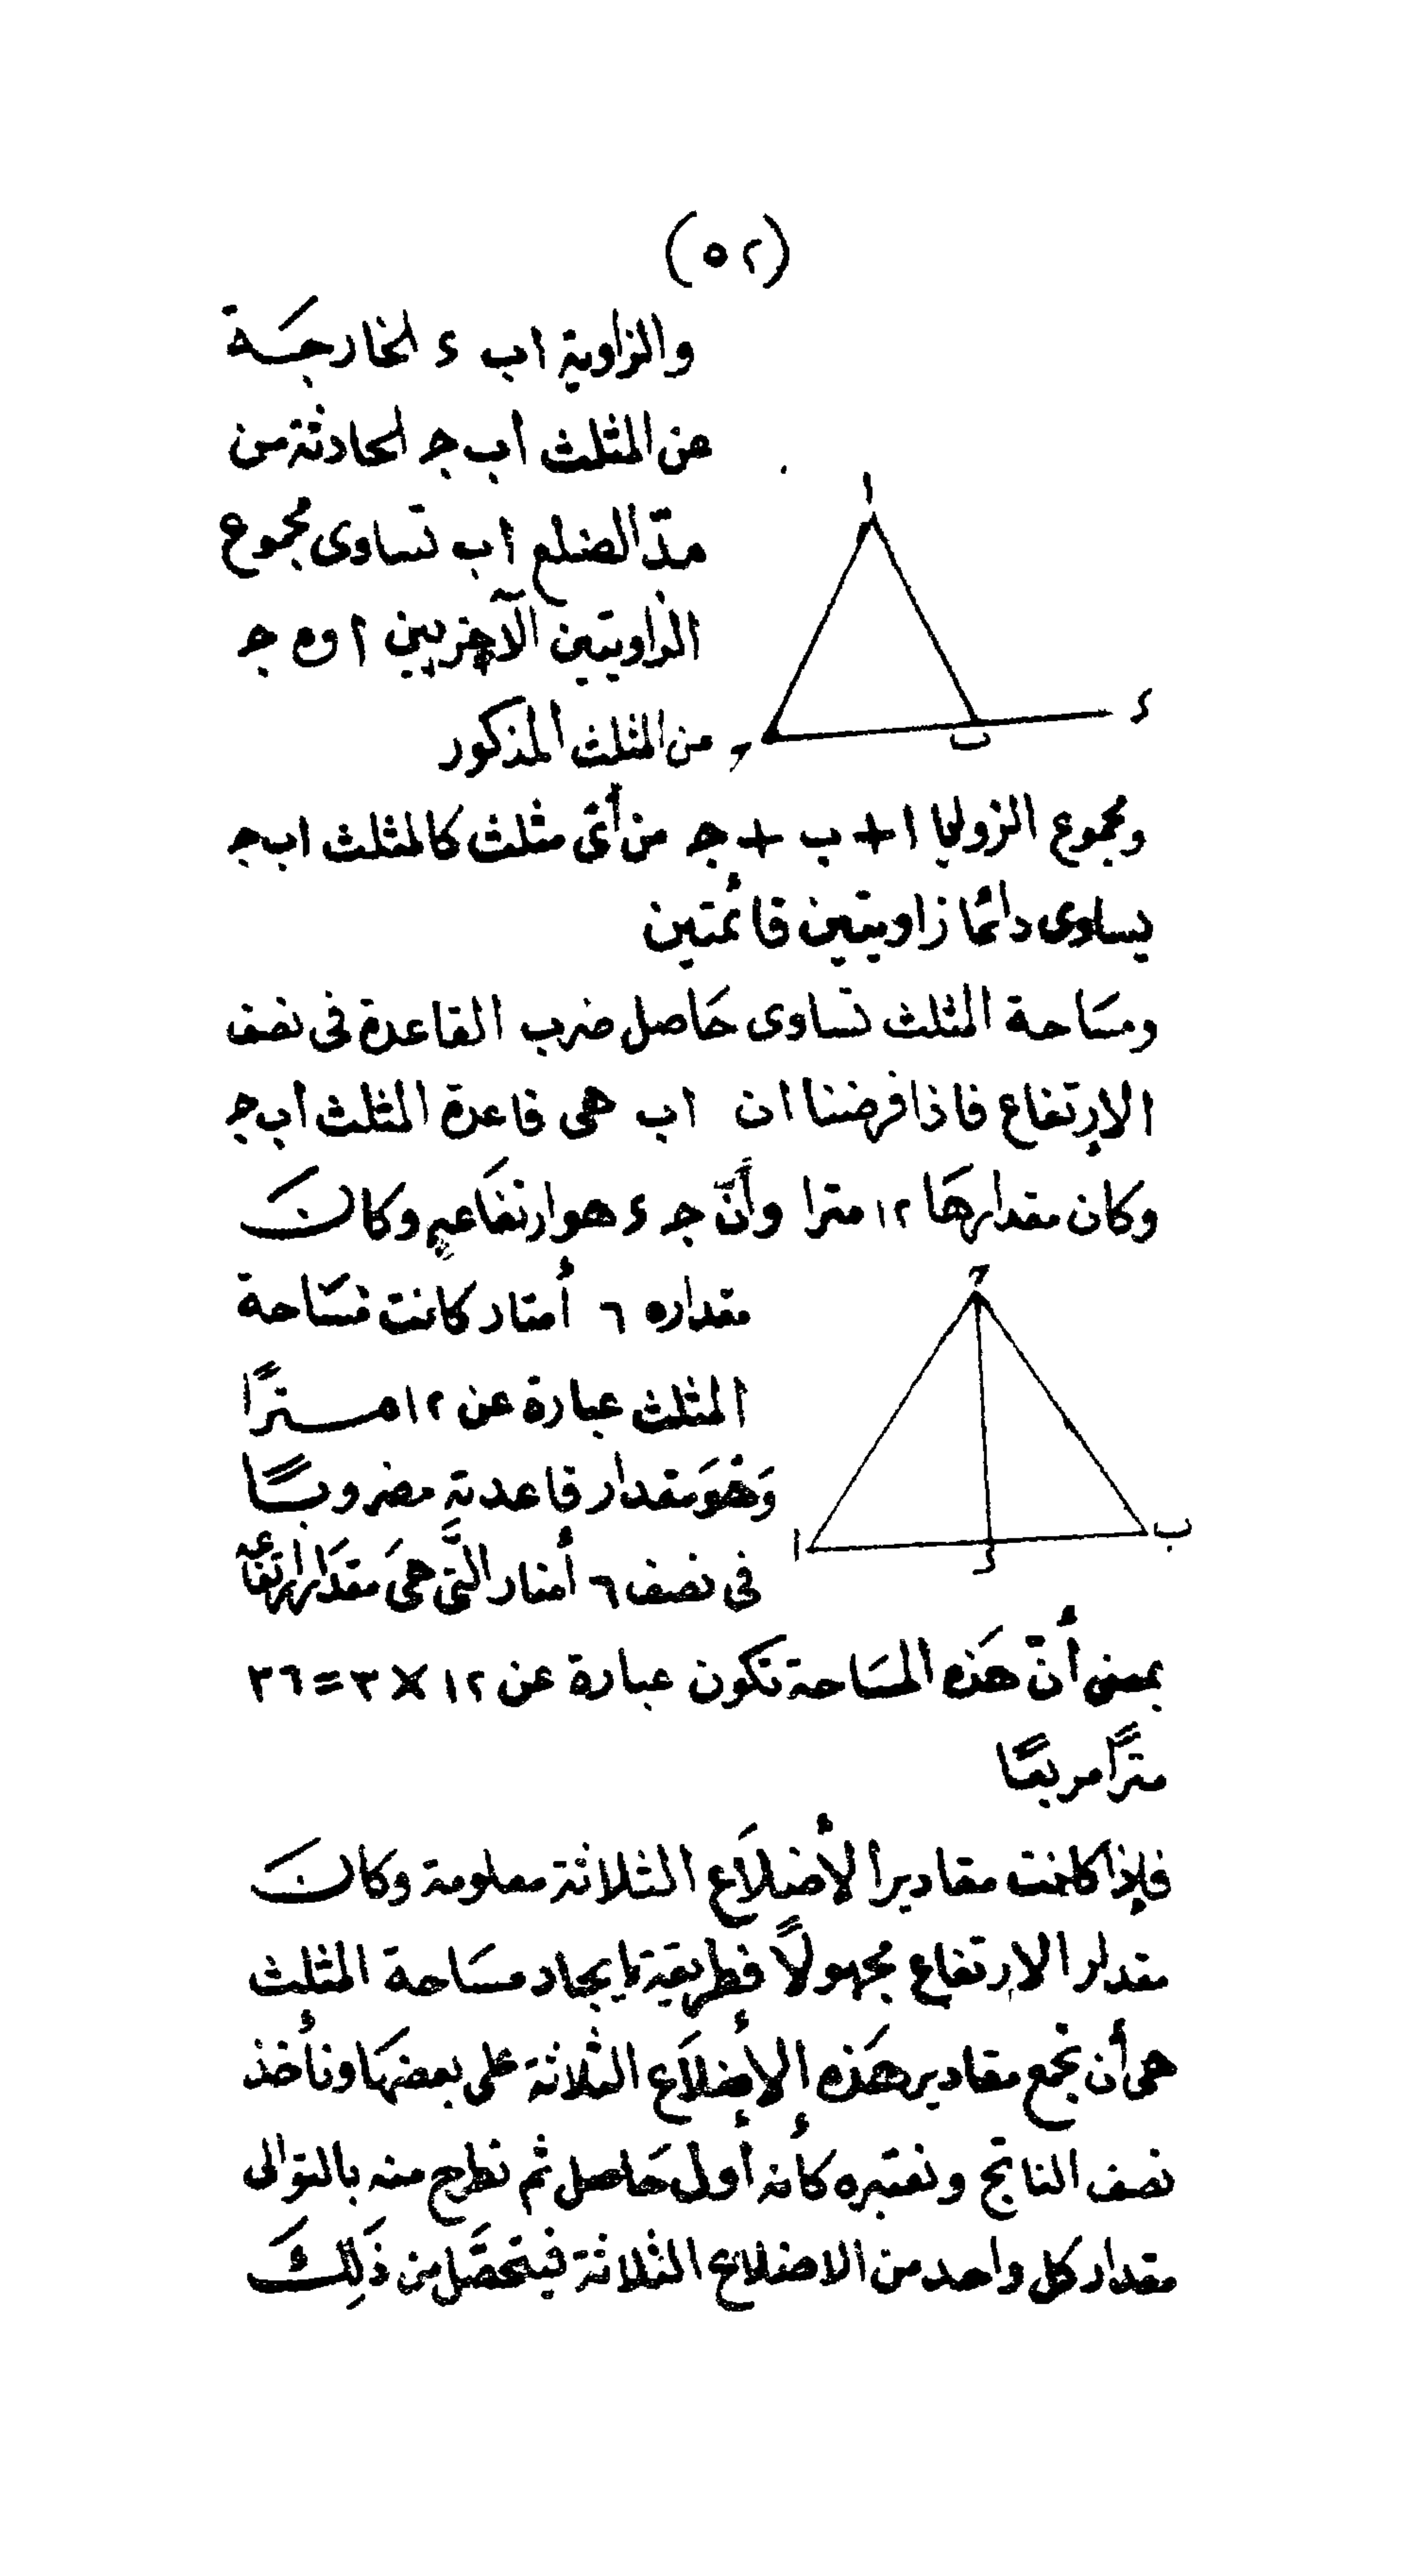 (٥٢)
والزاوية ا ب ء الخارجَة
عن المثلث أ ب جـ الحادثة من
مدّ الضلع أ ب تساوى مجموع
الزاويتين الآخريين أ و جـ
من المثلث المذكور
ا
ء
ب
جـ
ومجموع الزوايا ا + ب + جـ من أىّ مثلث كالمثلث ا ب جـ
يساوى دائمًا زاويتين قائمتين
ومسَاحة المثلث تساوى حَاصل ضرب القاعدة فى نصف
الإرتفاع فاذا فرضنا ان ا ب هى قاعدة المثلث أ ب جـ
وكان مقدارهَا ١٢ مترا وأنّ جـ ء هو ارتفَاعهِ وكانَ
مقداره ٦ أمتار كانت مسَاحة
المثلث عبارة عن ١٢ مترًا
وَهْوَ مقدار قاعدته مضروبًا
فى نصف ٦ أمتار التَّى هىَ مقدَار ارتفاعه
جـ
ا
ء
ب
بمعنى أنّ هَذه المسَاحة تكون عبارة عن ١٢ × ٣ = ٣٦
مترًا مربعًا
فإذا كانت مقادير الأضلَاع الثلاثة معلومة وكانَ
مقدار الارتفاع مجهولاً فطريقة إيجاد مسَاحة المثلث
هى أن نجمع مقادير هَذه الأضلَاع الثلاثة على بعضهَا ونأخذ
نصف الناتج ونعتبره كأنه أول حَاصل ثم نطرح منه بالتوالى
مقدار كل واحد من الاضلاع الثلاثة فيتحصَّل من ذَلِكَ